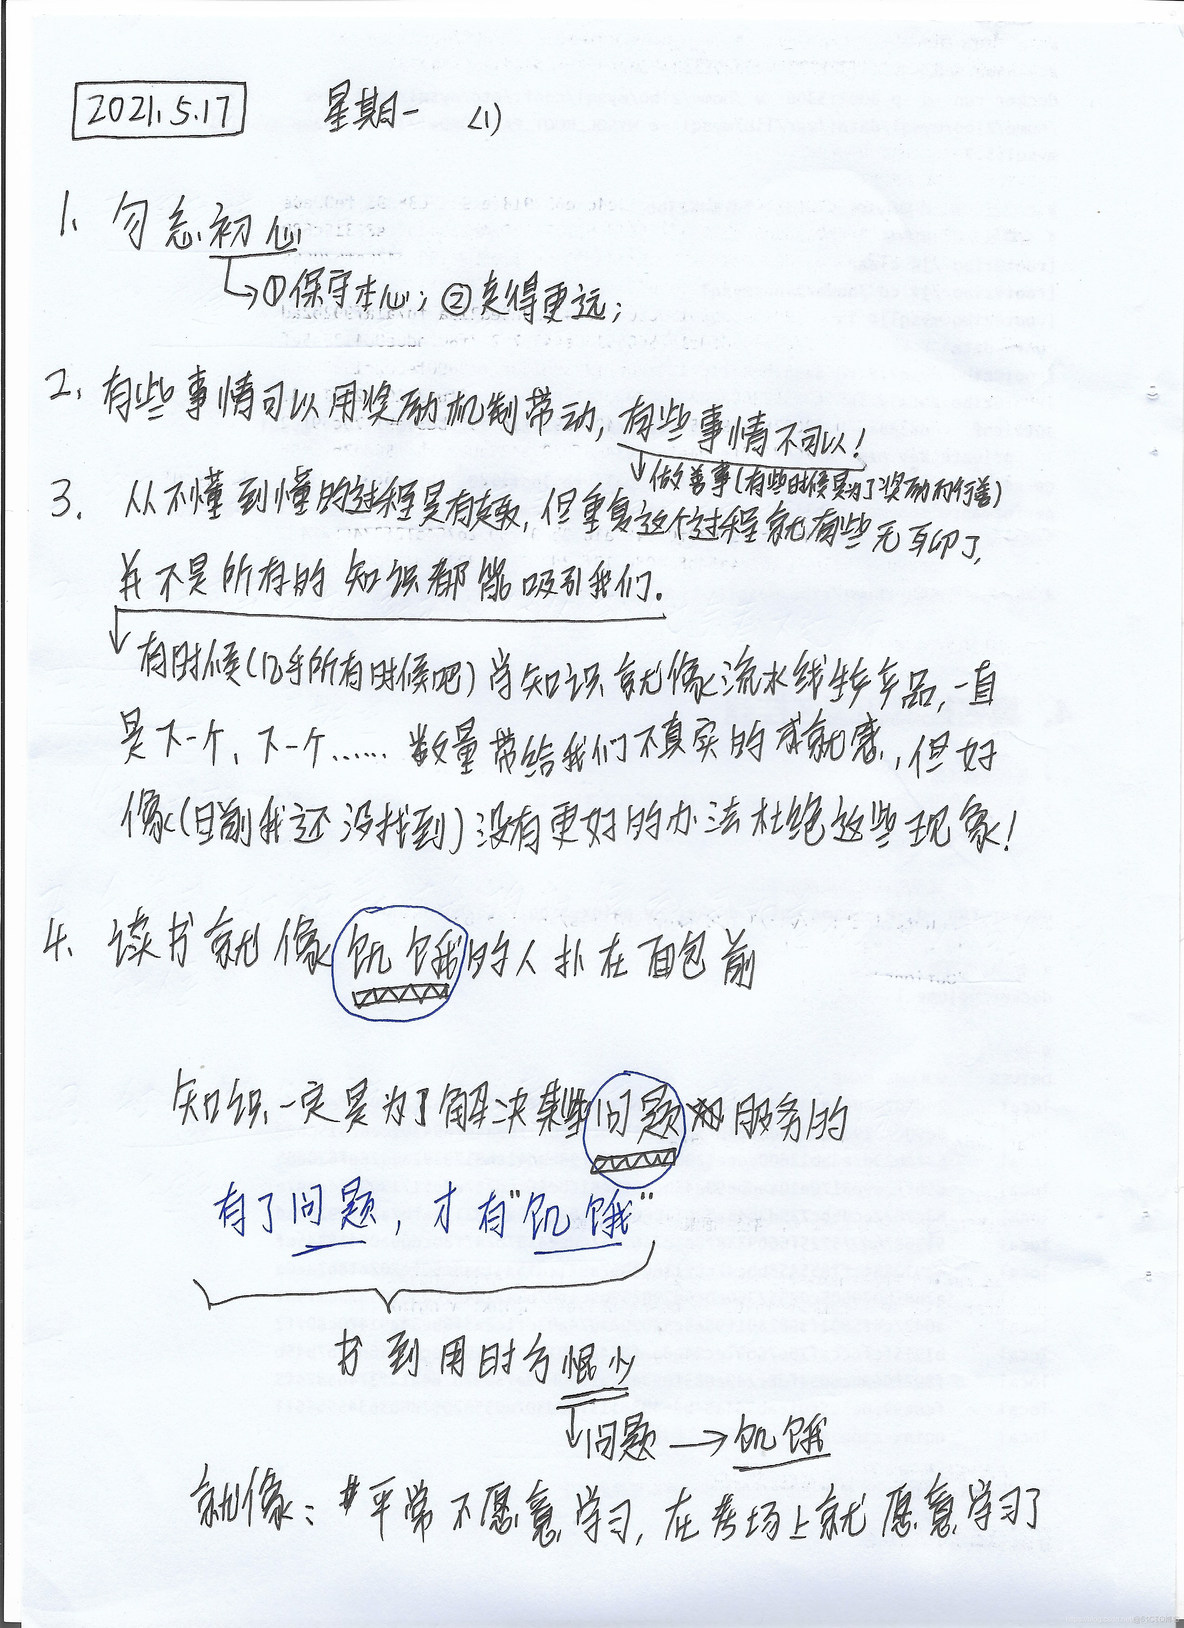 2021.5.17 星期一 <1>
1. 勿忘初心
→①保守本心；②走得更远；
2. 有些事情可以用奖励机制带动，有些事情不可以！
↓做善事(有些时候是为了奖励而行善)
3. 从不懂到懂的过程是有趣，但重复这个过程就有些无聊了，
并不是所有的知识都能吸引我们。
有时候(几乎所有时候吧)学知识就像流水线生产产品，一直
是下一个、下一个…… 数量带给我们不真实的成就感，但好
像(目前我还没找到)没有更好的办法杜绝这些现象！
4. 读书就像饥饿的人扑在面包前
知识一定是为了解决某些问题服务的
有了问题，才有"饥饿"
书到用时方恨少
↓问题→饥饿
就像：平常不愿意学习，在考场上就愿意学习了